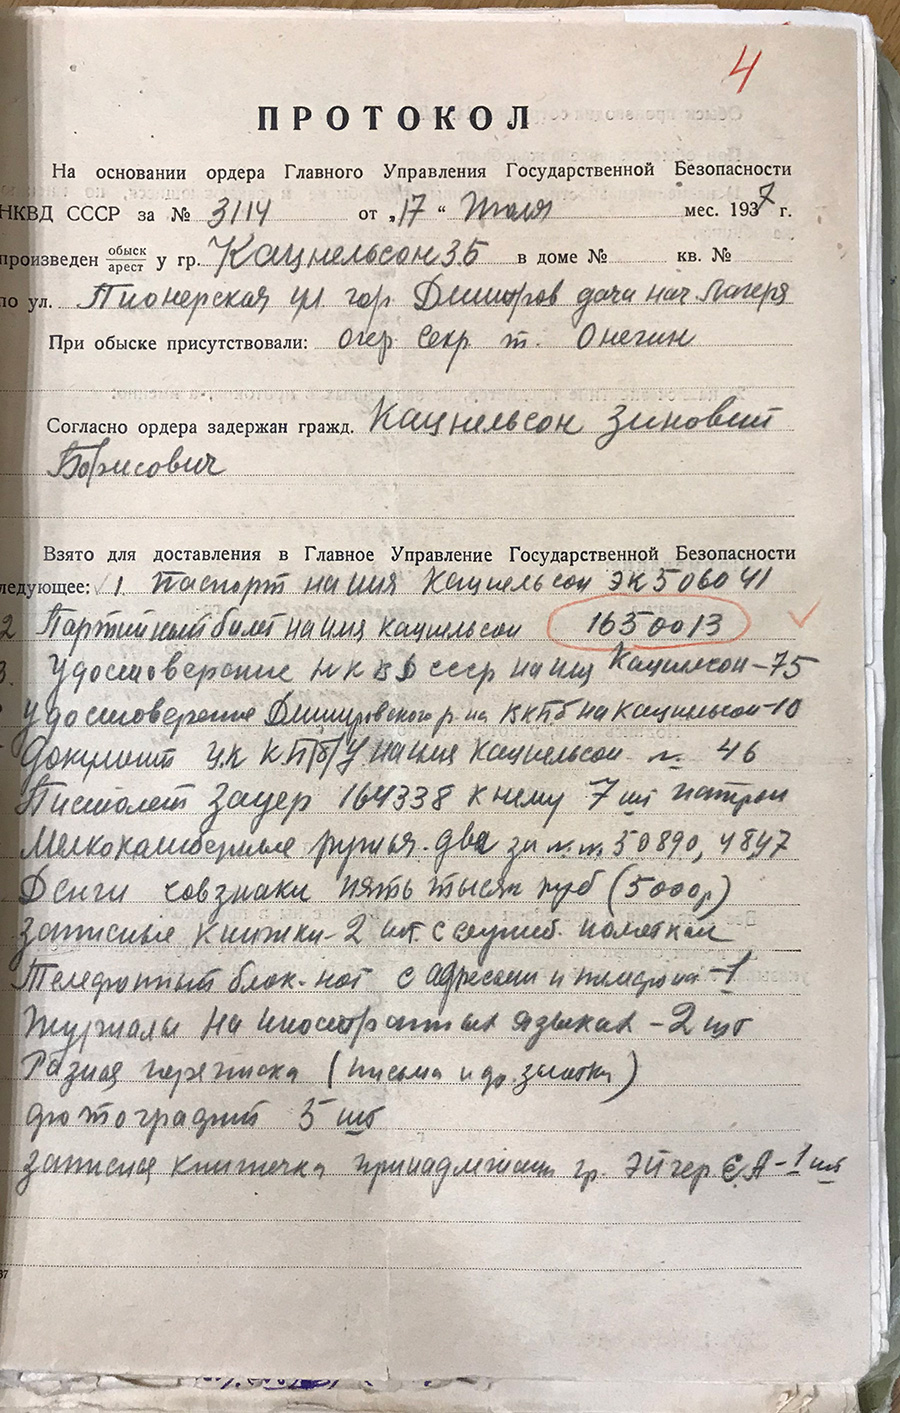 4
ПРОТОКОЛ
На основании ордера Главного Управления Государственной Безопасности
НКВД СССР за № 3114 от „17“ Июля мес. 1937 г.
произведен обыск/арест у гр. Кацнельсон ЗБ в доме № кв. №
по ул. Пионерская ул гор Дмитров дача нач Лагеря
При обыске присутствовали: Опер Секр т. Онегин
Согласно ордера задержан гражд. Кацнельсон Зиновий
Борисович
Взято для доставления в Главное Управление Государственной Безопасности
ледующее: 1 Паспорт на имя Кацнельсон ЭК 506041
2 Партийный билет на имя Кацнельсон 1650013
3. Удостоверение НКВД СССР на имя Кацнельсон – 75
Удостоверение Дмитровского р-на ВКПб на Кацнельсон - 10
Документ ЦК КП(б)У на имя Кацнельсон № 46
Пистолет Зауер 164338 к нему 7 шт патрон
Мелкокалиберные ружья два за №№ 50890, 4847
Денги совзнаки пять тысяч руб (5000 р)
Записные книжки - 2 шт. с служеб. пометкам
Телефонный блок-нот с адресами и телефона - 1
Журналы на иностранных языках - 2 шт
Разная переписка (письма и др.
фотографий 5 шт
Записная книжечка принадлежащ гр. Эйгер Е.А - 1 шт
37